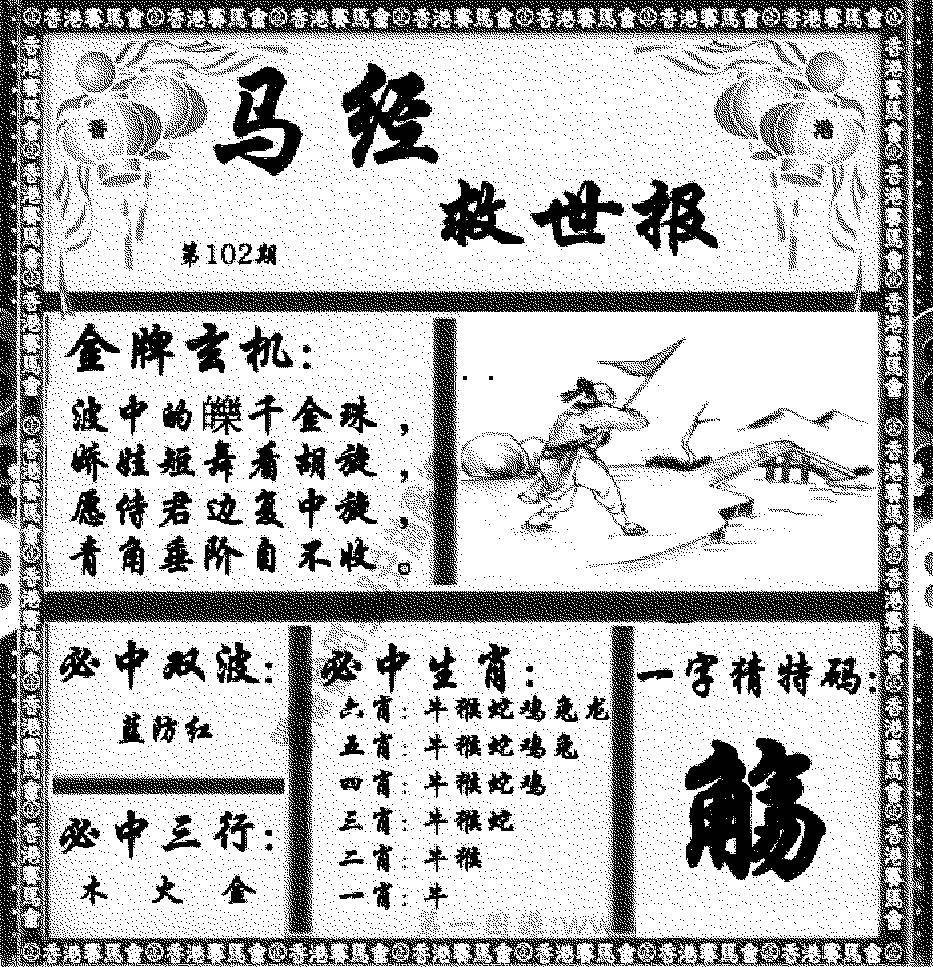 香港賽馬會香港賽馬會香港賽馬會香港賽馬會香港賽馬會香港賽馬會香港賽馬會
香
港
马经
救世报
第102期
金牌玄机：
波中的皪千金珠，
娇娃短舞看胡旋，
愿侍君边复中旋，
青角垂阶自不收。
必中双波：
蓝防红
必中三行：
木 火 金
必中生肖：
六肖：牛猴蛇鸡兔龙
五肖：牛猴蛇鸡兔
四肖：牛猴蛇鸡
三肖：牛猴蛇
二肖：牛猴
一肖：牛
一字猜特码：
觞
香港賽馬會香港賽馬會香港賽馬會香港賽馬會香港賽馬會香港賽馬會香港賽馬會